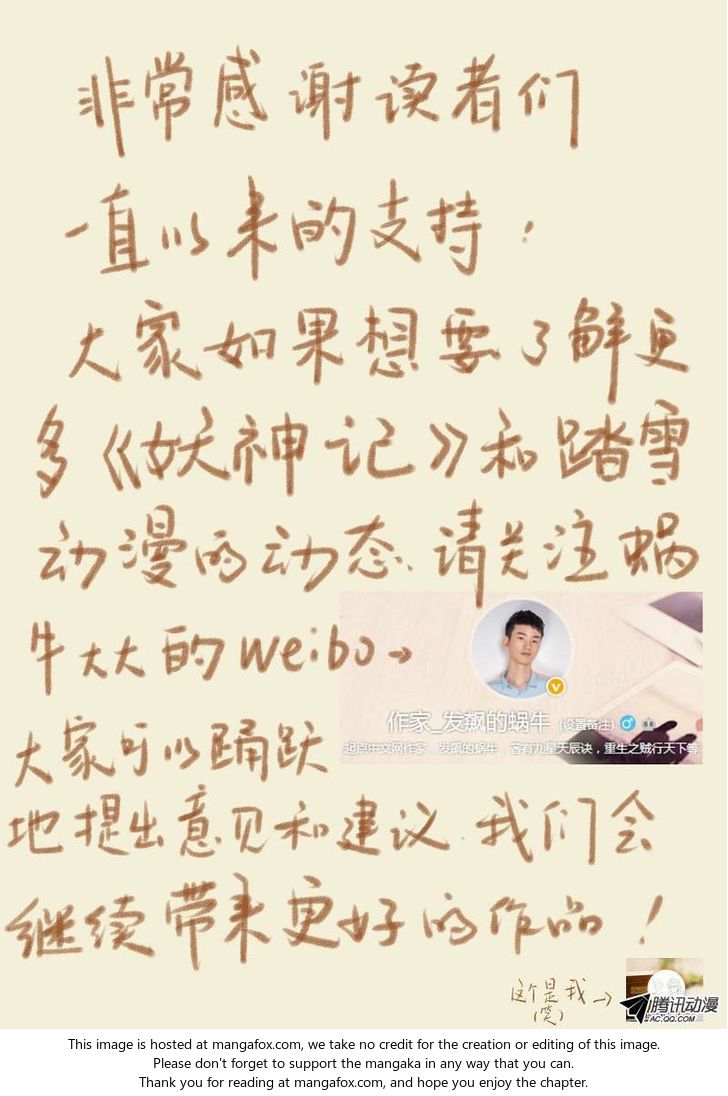 非常感谢读者们
一直以来的支持，
大家如果想要了解更
多《妖神记》和踏雪
动漫的动态、请关注蜗
牛大大的weibo→
作家_发飙的蜗牛 (设置备注)
起点中文网作家，发飙的蜗牛，著有九星天辰诀，重生之贼行天下等
大家可以踊跃
地提出意见和建议.我们会
继续带来更好的作品！
这个是我→
(笑)
腾讯动漫
AC.QQ.COM
This image is hosted at mangafox.com, we take no credit for the creation or editing of this image.
Please don't forget to support the mangaka in any way that you can.
Thank you for reading at mangafox.com, and hope you enjoy the chapter.